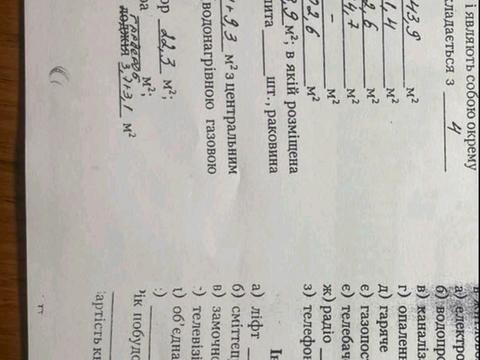 і являють собою окрему
кладається з 4
43,9 м²
1,4 м²
2,6 м²
4,7 м²
– м²
22,6 м²
8,9 м²; в якій розміщена
шт., раковина
9,3 м² з центральним
водонагрівною газовою
ор 22,3 м²;
м²;
3,7+3,1 м²
а) електр
б) водопро
в) каналі
г) опален
д) гаряче
е) газопос
є) телебач
ж) радіо
з) телефон
а) ліфт
б) сміттєп
в) замочно
телевізі
об'єдна
ік побудо
артість к